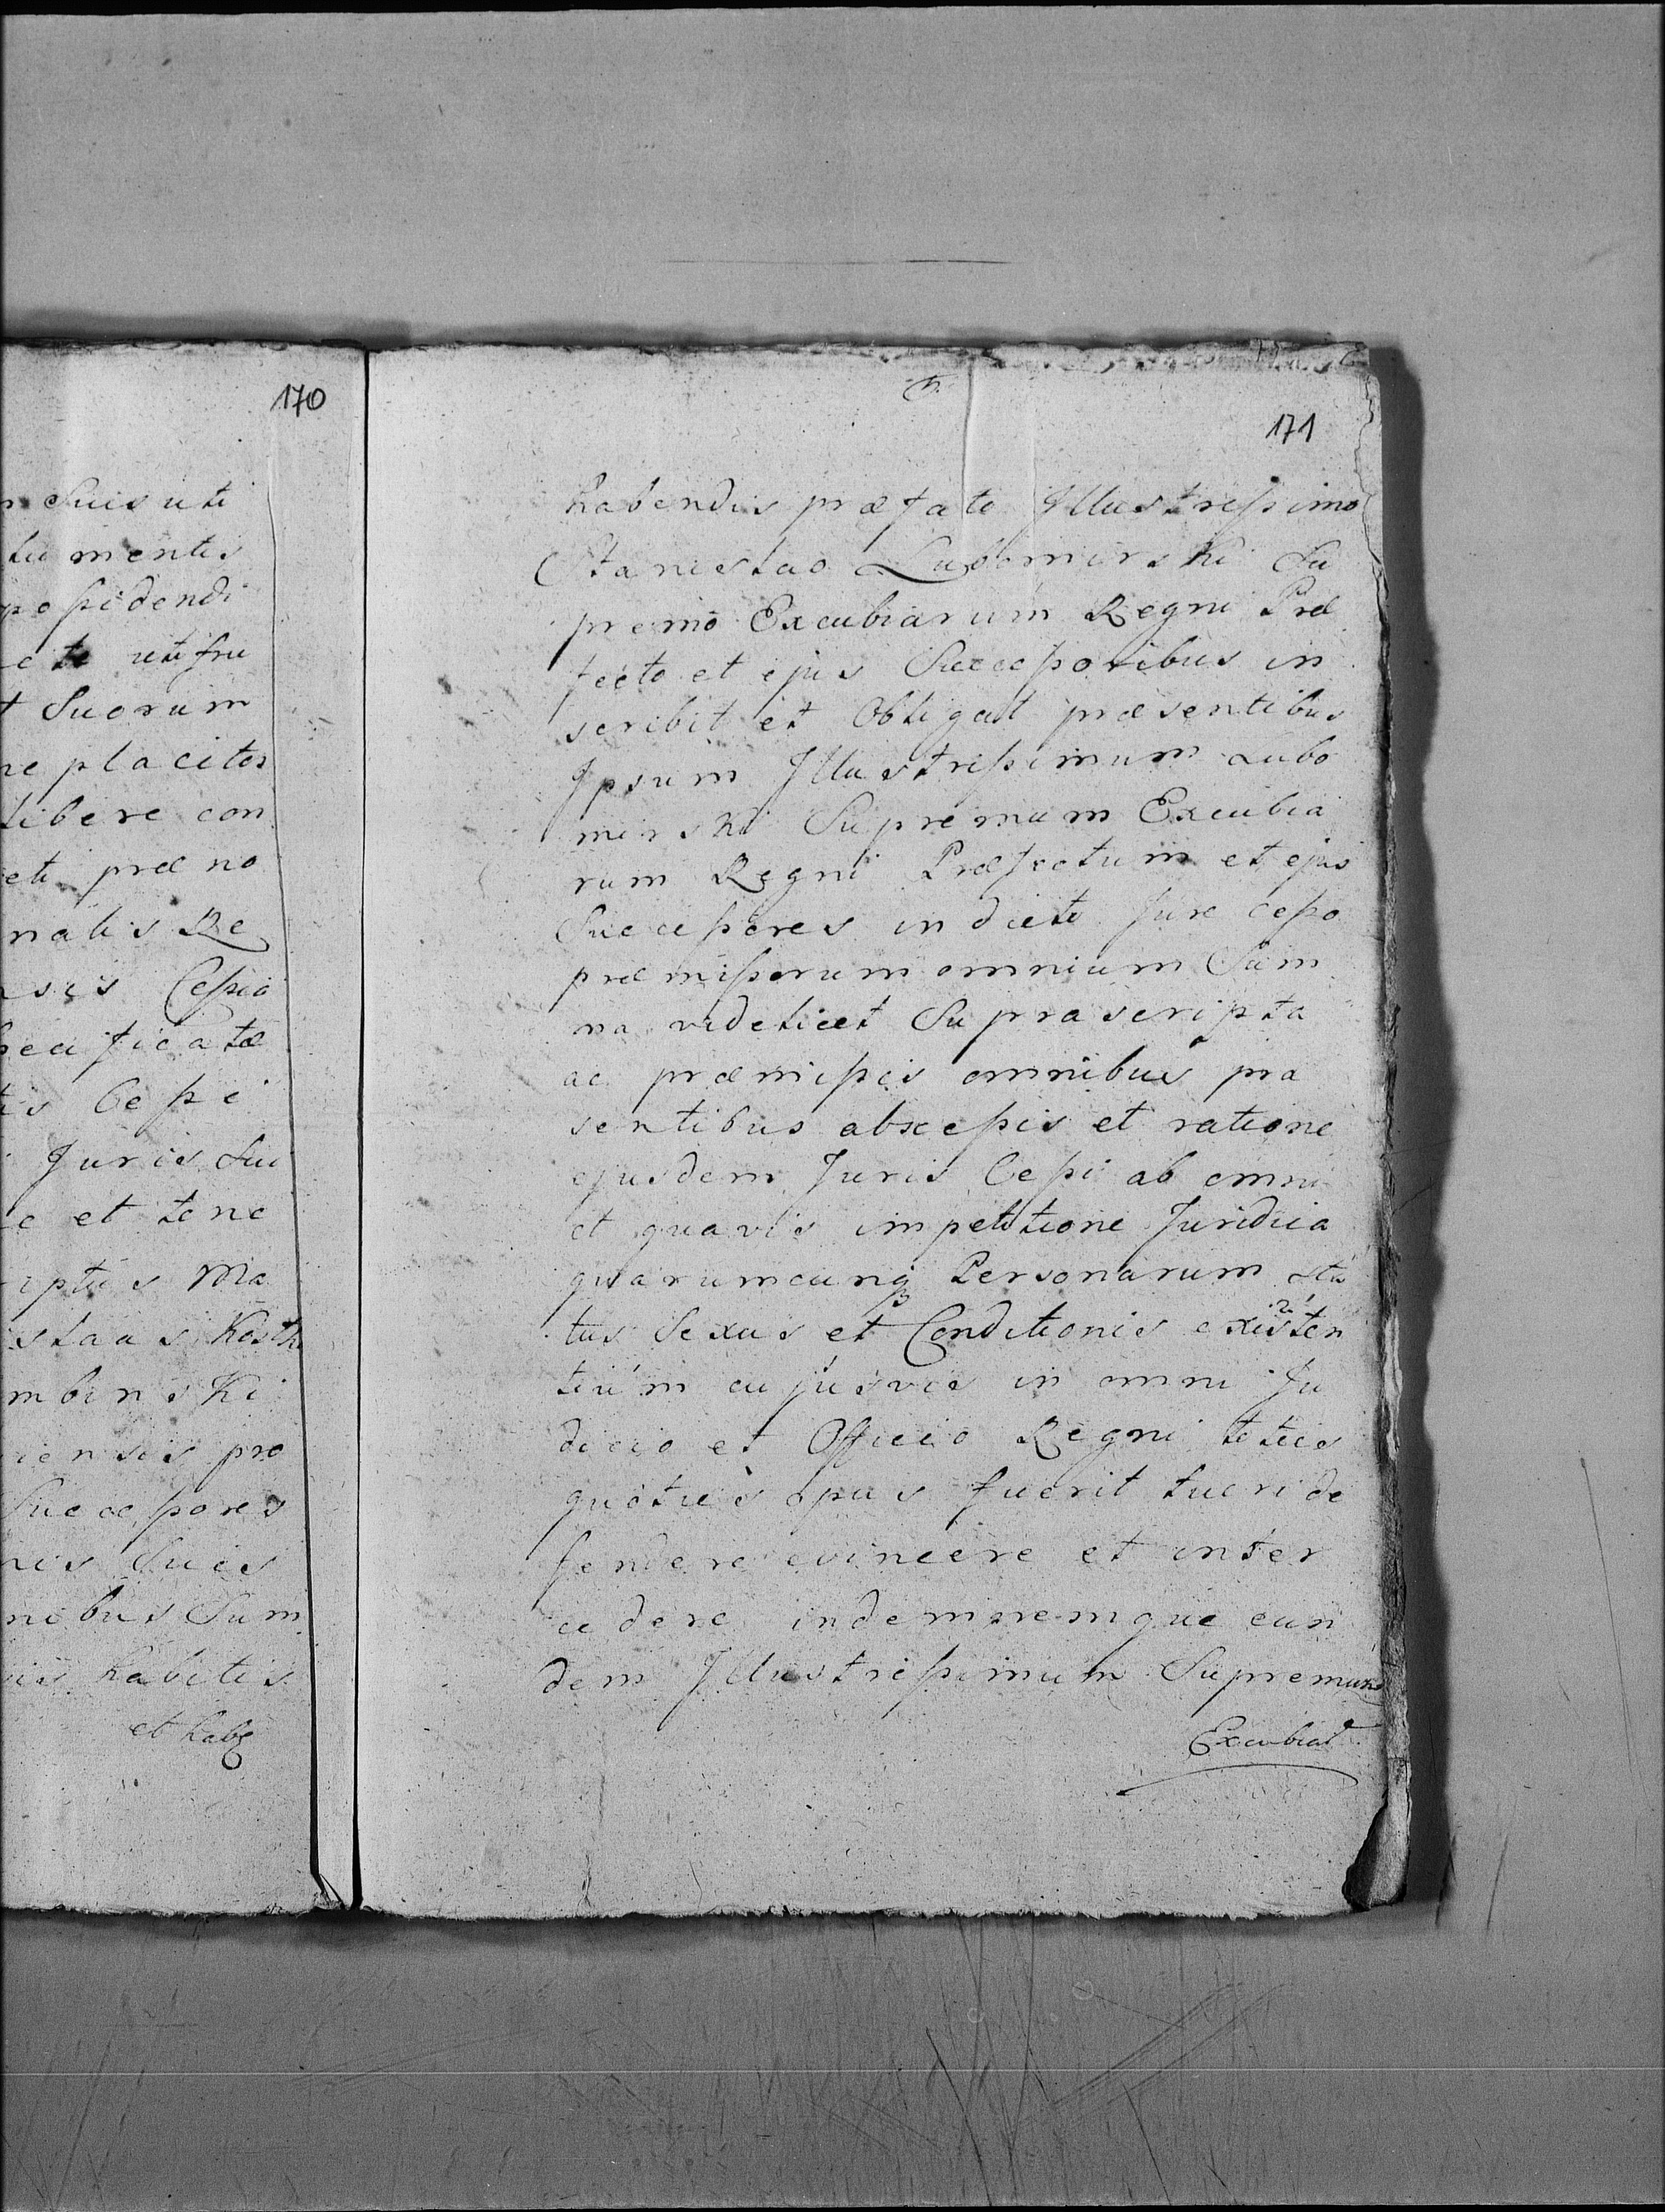 170
n Suis uti
tu mentis
possidendi
cte uti fru
t Suorum
ne placitor
libere con
eti præ no
nalis Re
sis Cessio
pecificatæ
tis Cessi
Juris Sui
e et tene
iptus Ma
islaus Kostk
mbinski
iensis pro
Successores
nis Suis
nibus Sum
is habitis
et habē
171
habendis præfato Illustrissimo
Stanislao Lubomirski Su
premo Excubiarum Regni Præ
fecto et ejus Successoribus in
scribit et Obligat præsentibus
Ipsum Illustrissimum Lubo
mirski Supremum Excubia
rum Regni Præfectum et ejus
Successores in dicto Jure cesso
præmissorum omnium Sum
ma videlicet Suprascripta
ac præmissis omnibus præ
sentibus abscessis et ratione
ejusdem Juris Cessi ab omni
et quavis impetitione Juridica
quarumcunq Personarum sta
tus Sexus et Conditionis existen
tium cujusvis in omni Ju
dicio et Officio Regni toties
quoties opus fuerit tueri de
fendere evincere et inter
cedere indemnemque eun
dem Illustrissimum Supremum
Excubiar